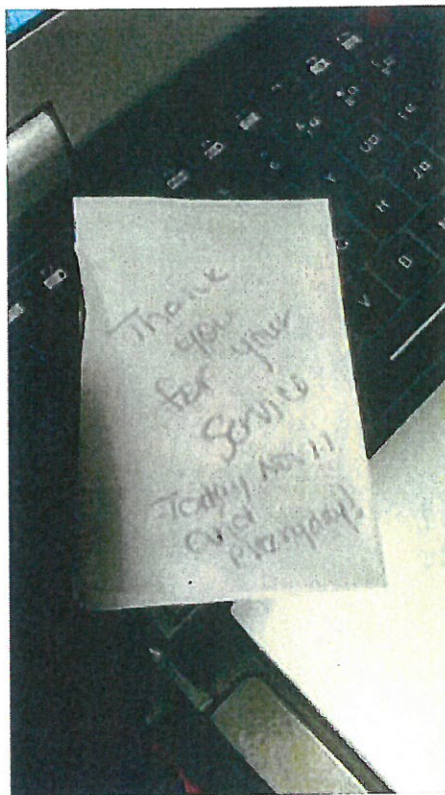 Thank
you
for your
Service
Today Nov 11
and
everyday!